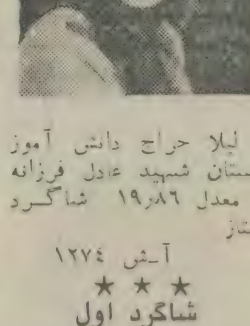 لیلا حراج دانش آموز
ستان شهید عادل فرزانه
معدل ۱۹٫۸۶ شاگرد
تاز
آ-ش ۱۲۷۴
★ ★ ★
شاگرد اول